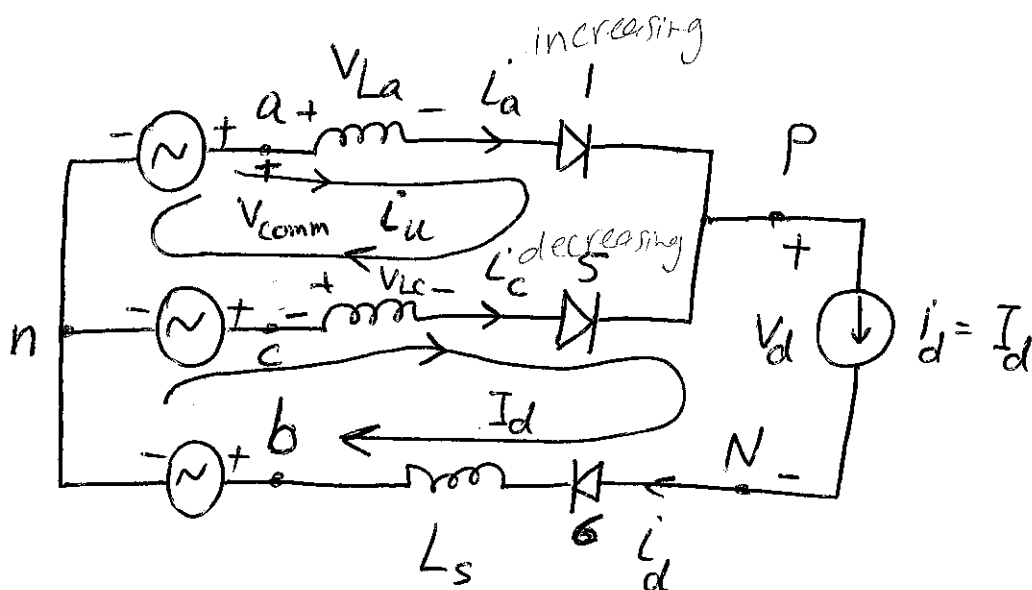 increasing
V_La
a + - i_a 1
- +
+
P
V_comm i_u
+
decreasing
+ V_Lc - i_c 5
- + -
n
c
V_d i_d = I_d
I_d
b
N -
- +
6
L_s
i_d